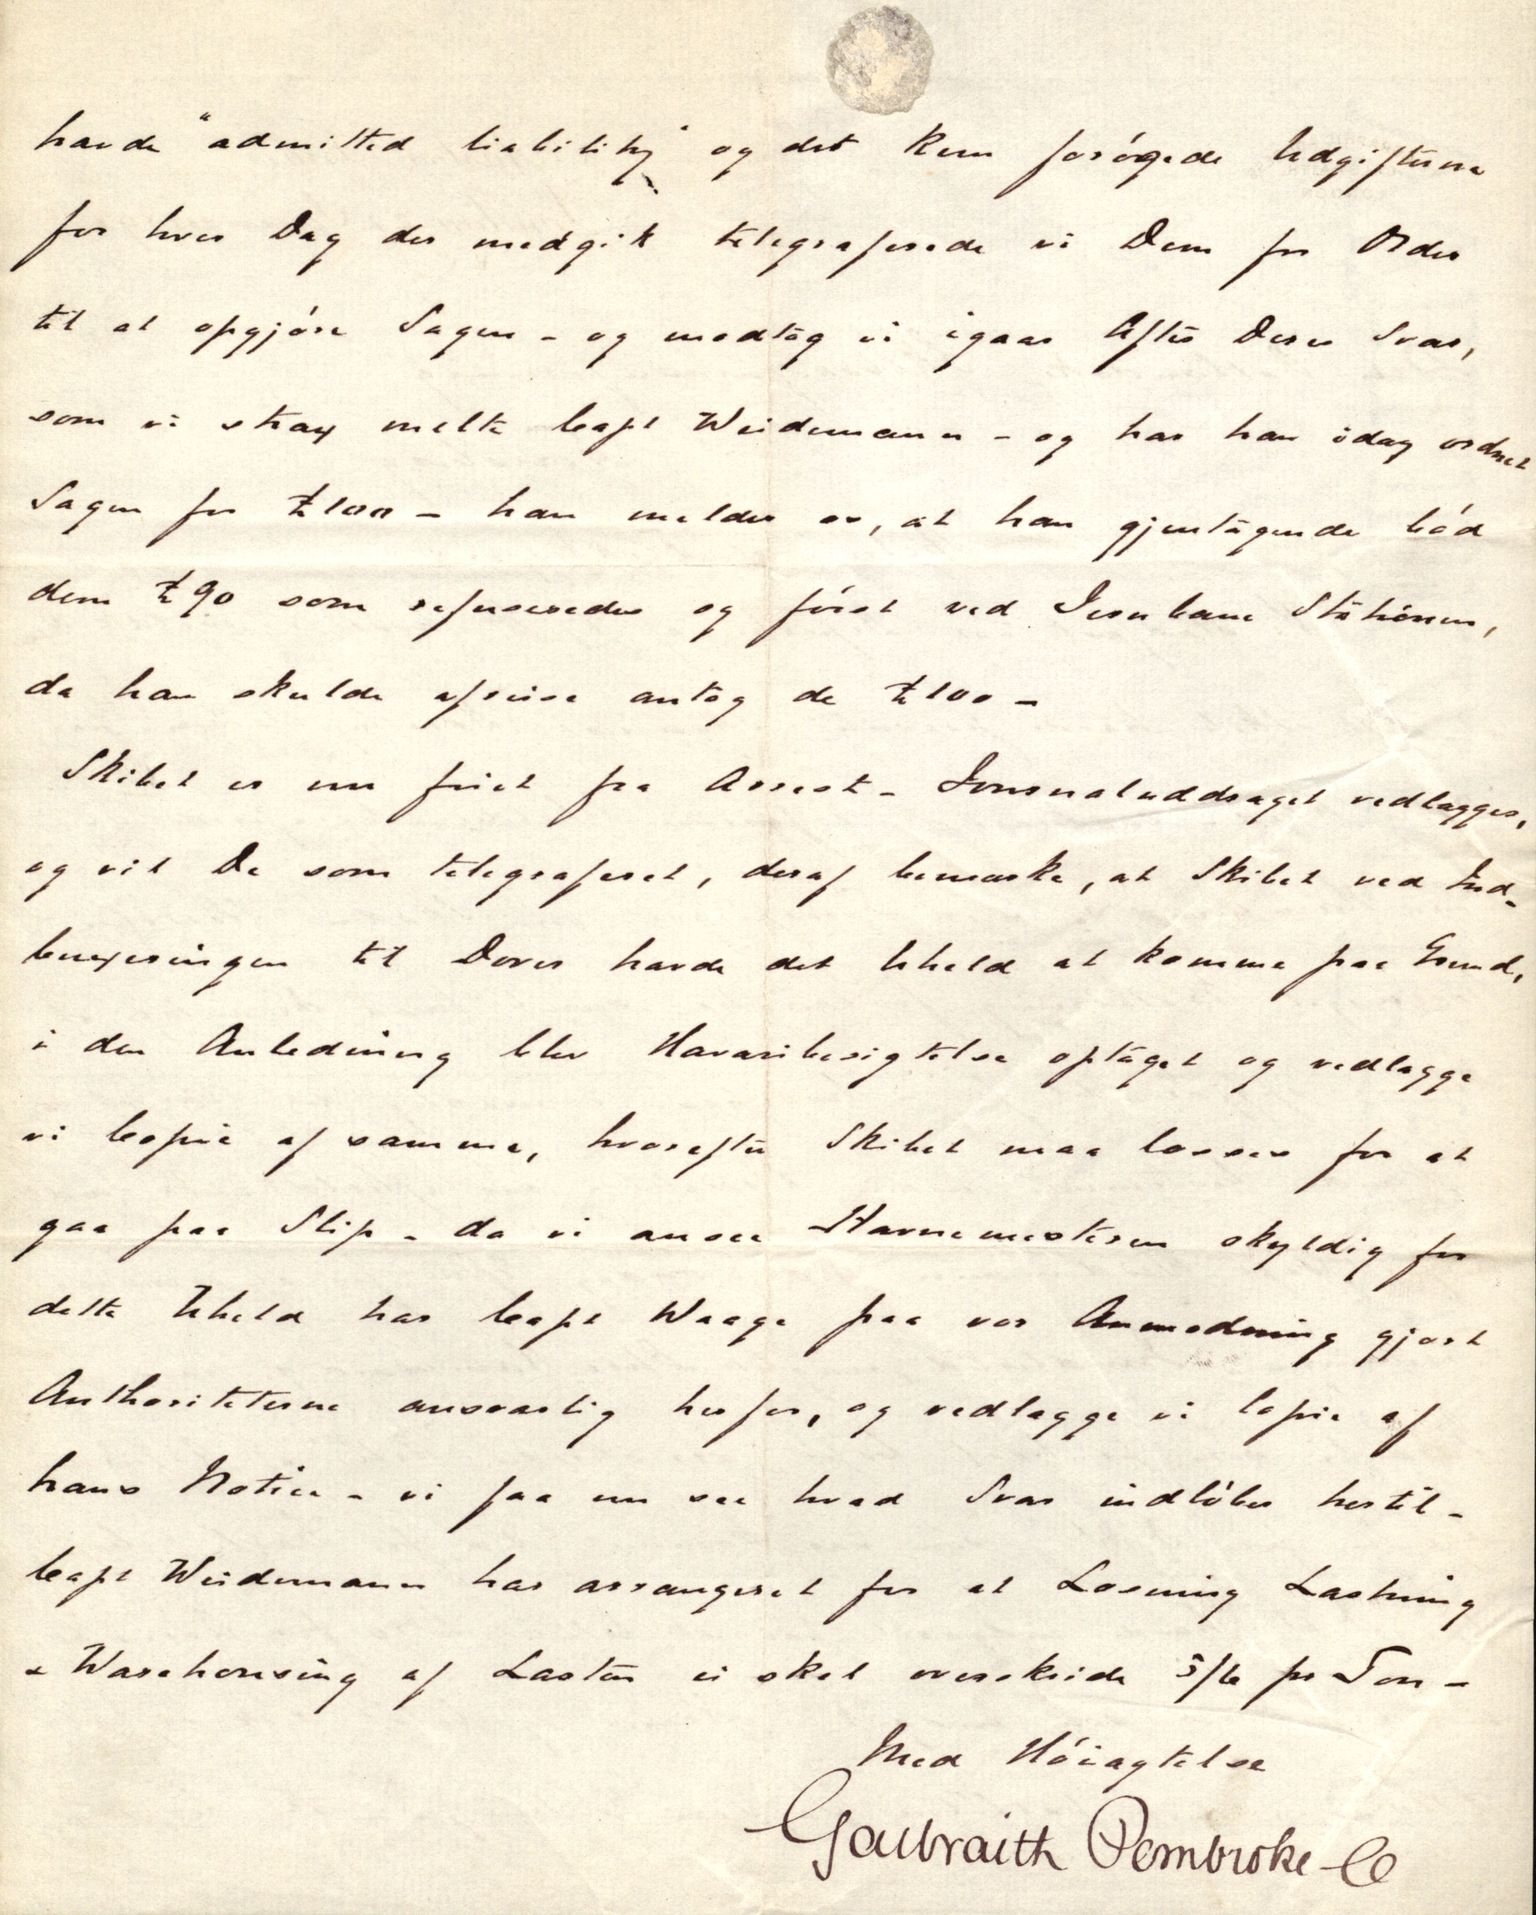 havde "admitted liability" og det kun forógede Udgifterne
for hver Dag der medgik telegraferede vi Dem for Order
til at opgjóre Sagen - og modtog vi igaar Aftes Deres Svar,
som vi strax meldte Capt Weidemann - og har han idag ordnet
Sagen for £100 - han melder os, at han gjentagende bód
dem £90 som refuseredes og fórst ved Jernbane Stationen,
da han skulde afreise antog de £100 -
Skibet er nu friet fra Arrest - Journaluddraget vedlægges,
og vil De som telegraferet, deraf bemærke, at Skibet ved Ind-
buxeringen til Dover havde det Uheld at komme paa Grund,
i den Anledning blev Havaribesigtelse optaget og vedlægge
vi Copie af samme, hvorefter Skibet maa losses for at
gaa paa Slip - da vi ansee Havnemesteren skyldig for
dette Uheld har Capt Waage paa vor Anmodning gjort
Authoriteterne ansvarlig herfor, og vedlægge vi Copie af
hans Notice - vi faa nu see hvad Svar indlóber hertil -
Capt Weidemann har arrangeret for at Losning Lastning
& Warehousing af Lasten ei skal overskride 5/6 pr Ton -
Med Hóiagtelse
Galbraith Pembroke & Co